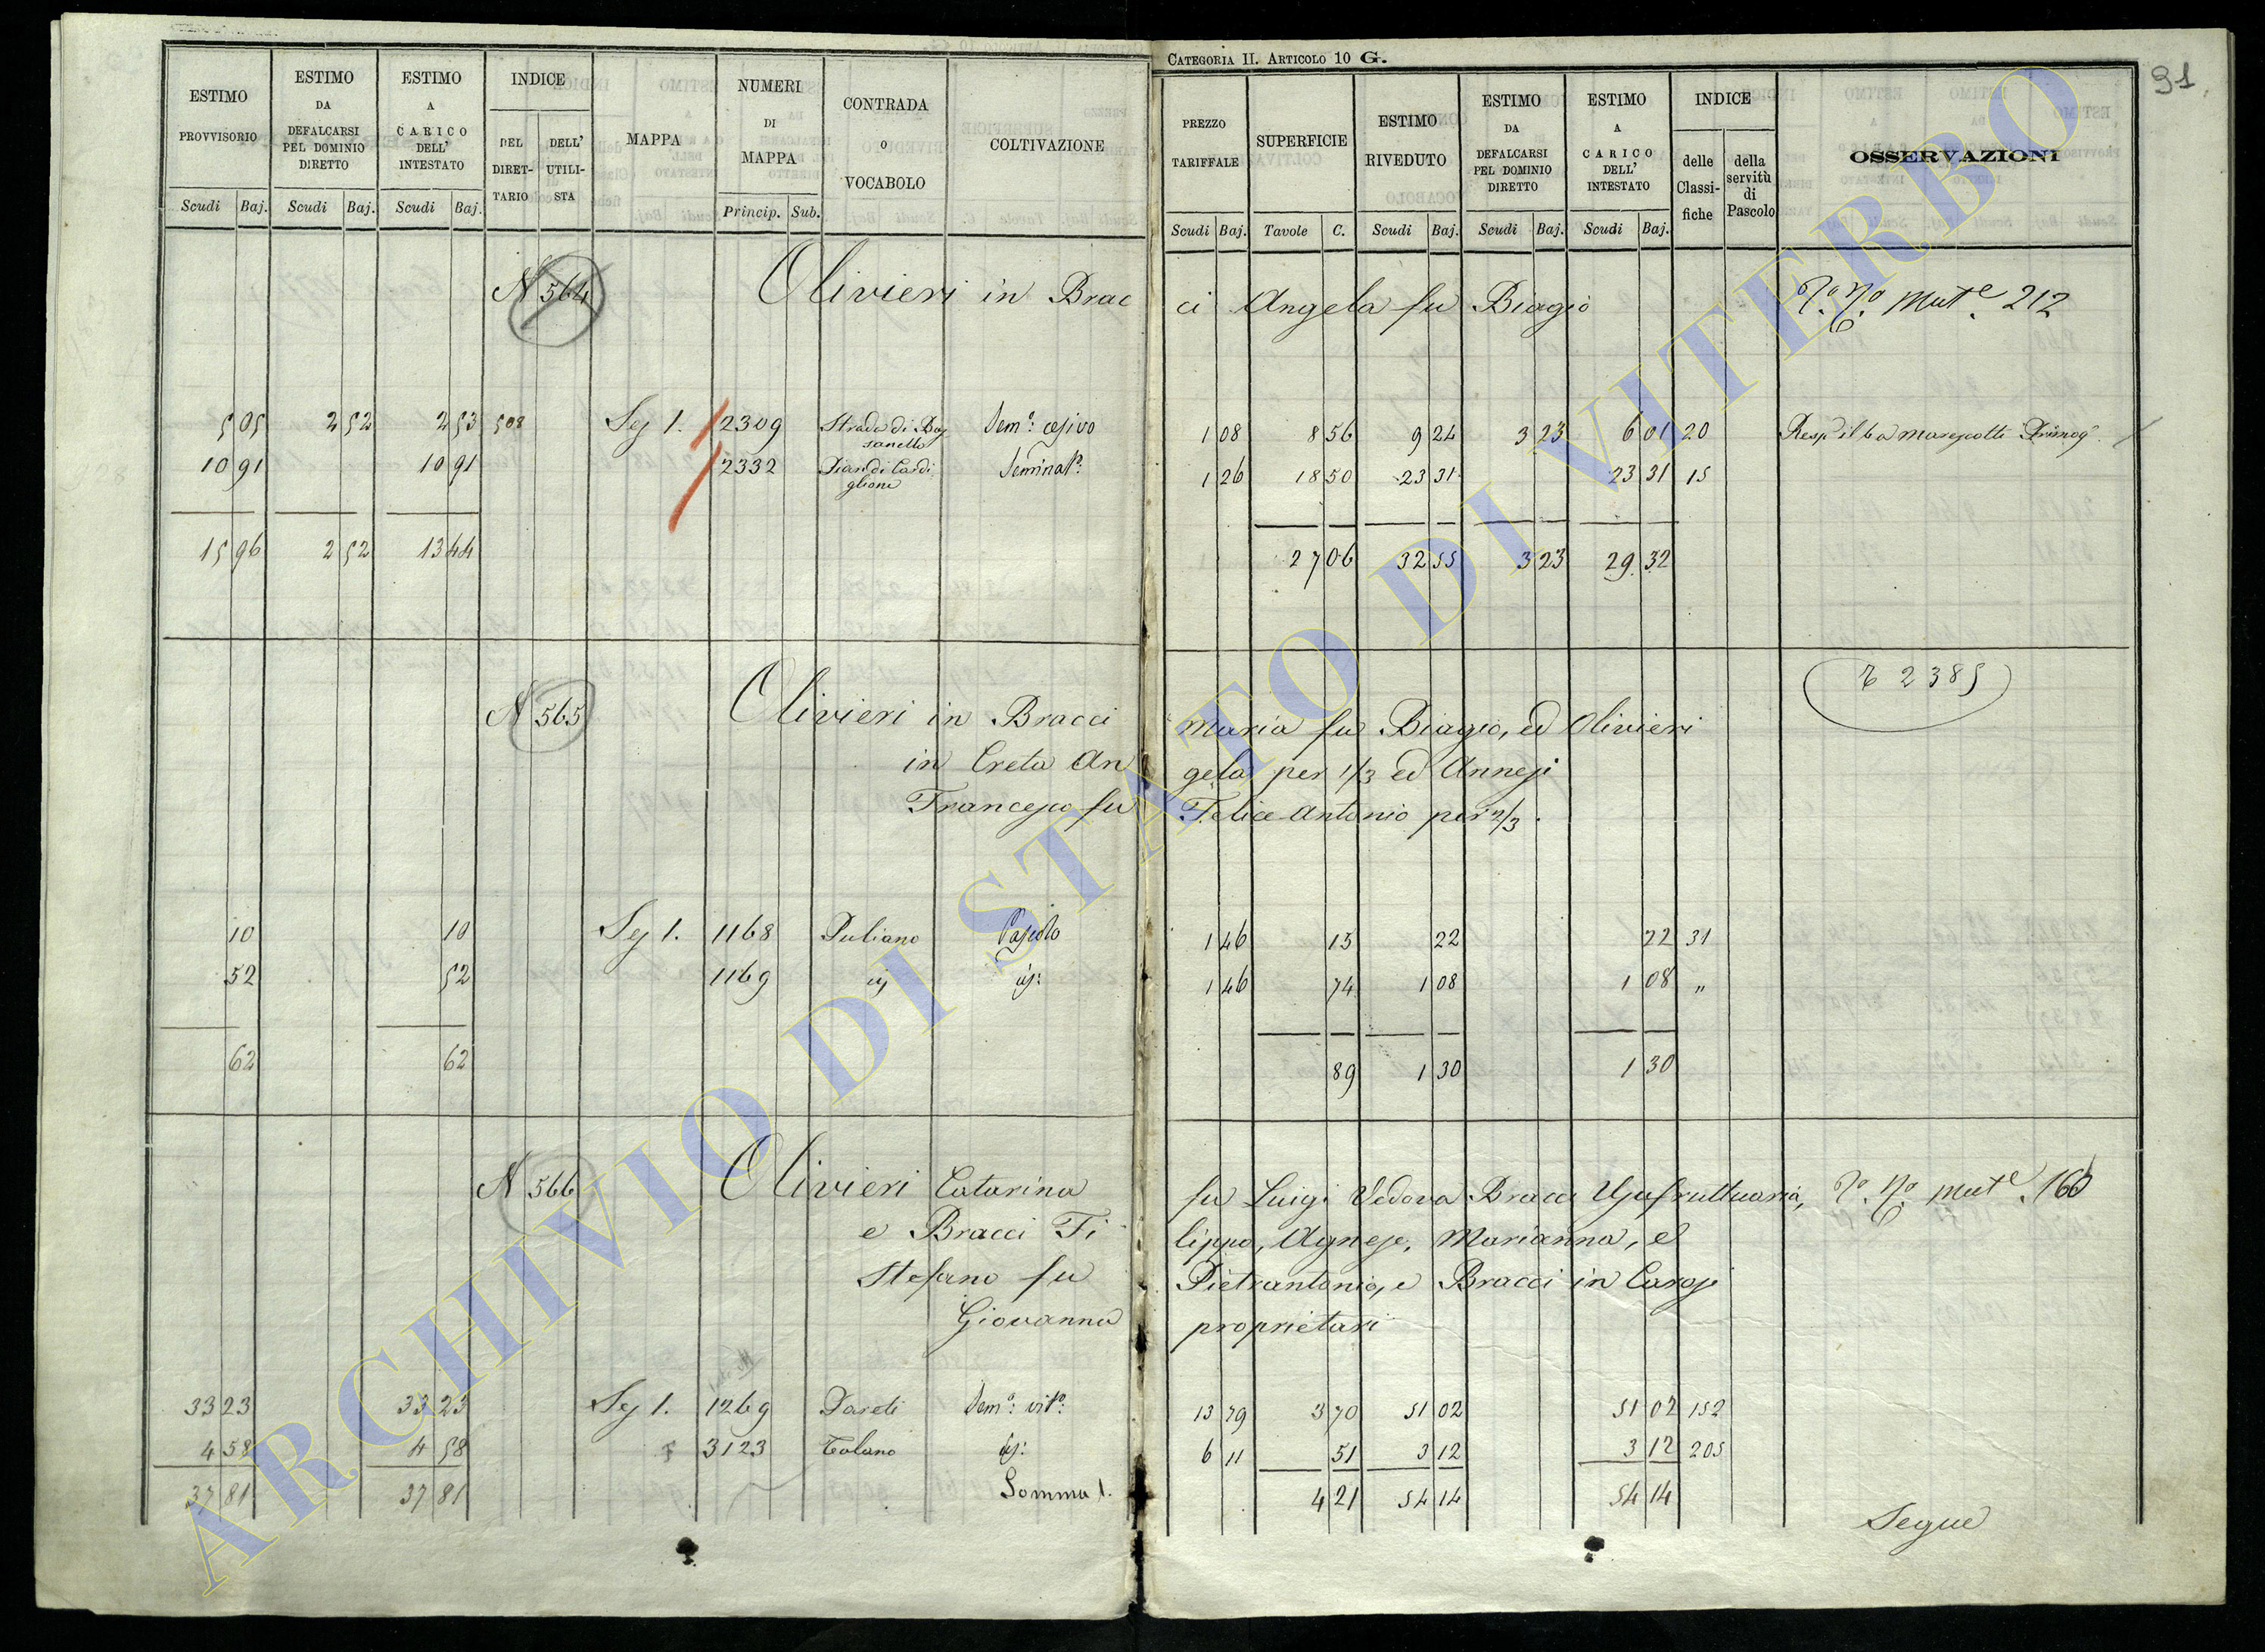 CATEGORIA II. ARTICOLO 10 G.
91
ESTIMO PROVVISORIO ESTIMO DA DEFALCARSI PEL DOMINIO DIRETTO ESTIMO A CARICO DELL' INTESTATO INDICE DEL DIRETTARIO DELL' UTILISTA MAPPA NUMERI DI MAPPA CONTRADA O VOCABOLO COLTIVAZIONE PREZZO TARIFFALE SUPERFICIE ESTIMO RIVEDUTO ESTIMO DA DEFALCARSI PEL DOMINIO DIRETTO ESTIMO A CARICO DELL' INTESTATO INDICE delle Classifiche della servitù di Pascolo OSSERVAZIONI
Scudi Baj. Scudi Baj. Scudi Baj. Princip. Sub. Scudi Baj. Tavole C. Scudi Baj. Scudi Baj. Scudi Baj.
N 564 Olivieri in Bracci Angela fu Biagio Mut.e 212
5 05 2 52 2 53 508 Sez 1. 2309 Strada di Bassanello Sem.o cesivo 1 08 8 56 9 24 3 23 6 01 20
10 91 10 91 2332 Seminat.o 1 26 18 50 23 31 23 31 15
15 96 2 52 13 44 27 06 32 55 3 23 29 32
N 565 Olivieri in Bracci Maria fu Biagio, ed Olivieri 2385
in Creta Angela per 1/3 ed Annesi
Francesco fu Felice Antonio per 2/3.
10 10 Sez 1. 1168 Puliano Pascolo 1 46 15 22 22 31
52 52 1169 1 46 74 1 08 1 08 "
62 62 89 1 30 1 30
N 566 Olivieri Catarina fu Luigi Vedova Bracci Usufruttuaria, Mut.e 160
e Bracci Filippo, Agnese, Marianna, e
Stefano fu Pietrantonio, e Bracci in Carosi
Giovanna proprietari
33 23 33 23 Sez 1. 1269 Pareti Sem.o vit.o 13 79 3 70 51 02 51 02 152
4 58 4 58 3123 Tolano 6 11 51 3 12 3 12 205
37 81 37 81 Somma 4 21 54 14 54 14
Segue
ARCHIVIO DI STATO DI VITERBO